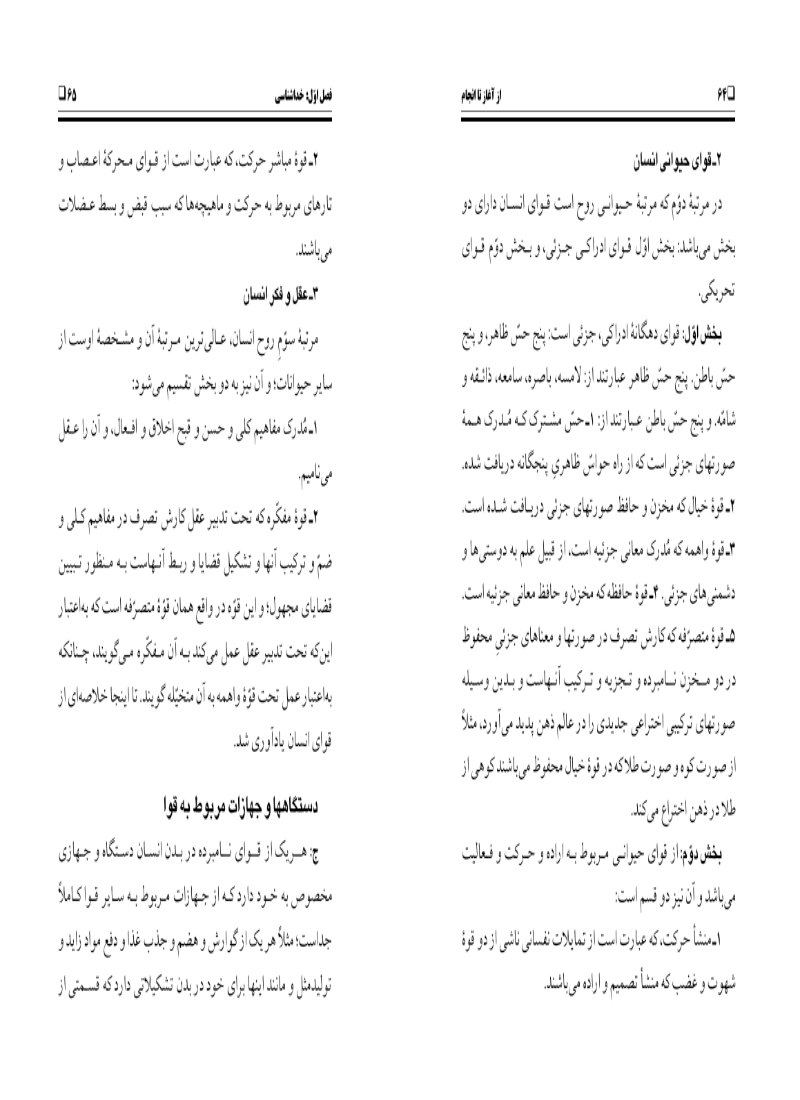 ❏۶۴ از آغاز تا انجام
۲ـ قوای حیوانی انسان
در مرتبهٔ دوّم که مرتبهٔ حیوانی روح است قوای انسان دارای دو
بخش می‌باشد: بخش اوّل قوای ادراکی جزئی، و بخش دوّم قوای
تحریکی.
بخش اوّل: قوای دهگانهٔ ادراکی، جزئی است: پنج حسّ ظاهر، و پنج
حسّ باطن. پنج حسّ ظاهر عبارتند از: لامسه، باصره، سامعه، ذائقه و
شامّه. و پنج حسّ باطن عبارتند از: ۱ـ حسّ مشترک که مُدرک همهٔ
صورتهای جزئی است که از راه حواسّ ظاهریِ پنجگانه دریافت شده.
۲ـ قوهٔ خیال که مخزن و حافظ صورتهای جزئی دریافت شده است.
۳ـ قوهٔ واهمه که مُدرک معانی جزئیه است، از قبیل علم به دوستی‌ها و
دشمنی‌های جزئی. ۴ـ قوهٔ حافظه که مخزن و حافظ معانی جزئیه است.
۵ـ قوهٔ متصرّفه که کارش تصرف در صورتها و معناهای جزئیِ محفوظ
در دو مخزن نامبرده و تجزیه و ترکیب آنهاست و بدین وسیله
صورتهای ترکیبی اختراعی جدیدی را در عالم ذهن پدید می‌آورد، مثلاً
از صورت کوه و صورت طلا که در قوهٔ خیال محفوظ می‌باشند کوهی از
طلا در ذهن اختراع می‌کند.
بخش دوّم: از قوای حیوانی مربوط به اراده و حرکت و فعالیت
می‌باشد و آن نیز دو قسم است:
۱ـ منشأ حرکت، که عبارت است از تمایلات نفسانی ناشی از دو قوهٔ
شهوت و غضب که منشأ تصمیم و اراده می‌باشند.
فصل اوّل: خداشناسی ۶۵❏
۲ـ قوهٔ مباشر حرکت، که عبارت است از قوای محرکهٔ اعصاب و
تارهای مربوط به حرکت و ماهیچه‌ها که سبب قبض و بسط عضلات
می‌باشند.
۳ـ عقل و فکر انسان
مرتبهٔ سوّمِ روح انسان، عالی‌ترین مرتبهٔ آن و مشخصهٔ اوست از
سایر حیوانات؛ و آن نیز به دو بخش تقسیم می‌شود:
۱ـ مُدرک مفاهیم کلی و حسن و قبح اخلاق و افعال، و آن را عقل
می‌نامیم.
۲ـ قوهٔ مفکّره که تحت تدبیر عقل کارش تصرف در مفاهیم کلی و
ضمّ و ترکیب آنها و تشکیل قضایا و ربط آنهاست به منظور تبیین
قضایای مجهول؛ و این قوّه در واقع همان قوّهٔ متصرّفه است که به‌اعتبار
این‌که تحت تدبیر عقل عمل می‌کند به آن مفکّره می‌گویند، چنانکه
به‌اعتبار عمل تحت قوّهٔ واهمه به آن متخیّله گویند. تا اینجا خلاصه‌ای از
قوای انسان یادآوری شد.
دستگاهها و جهازات مربوط به قوا
ج: هریک از قوای نامبرده در بدن انسان دستگاه و جهازی
مخصوص به خود دارد که از جهازات مربوط به سایر قوا کاملاً
جداست؛ مثلاً هر یک از گوارش و هضم و جذب غذا و دفع مواد زاید و
تولیدمثل و مانند اینها برای خود در بدن تشکیلاتی دارد که قسمتی از